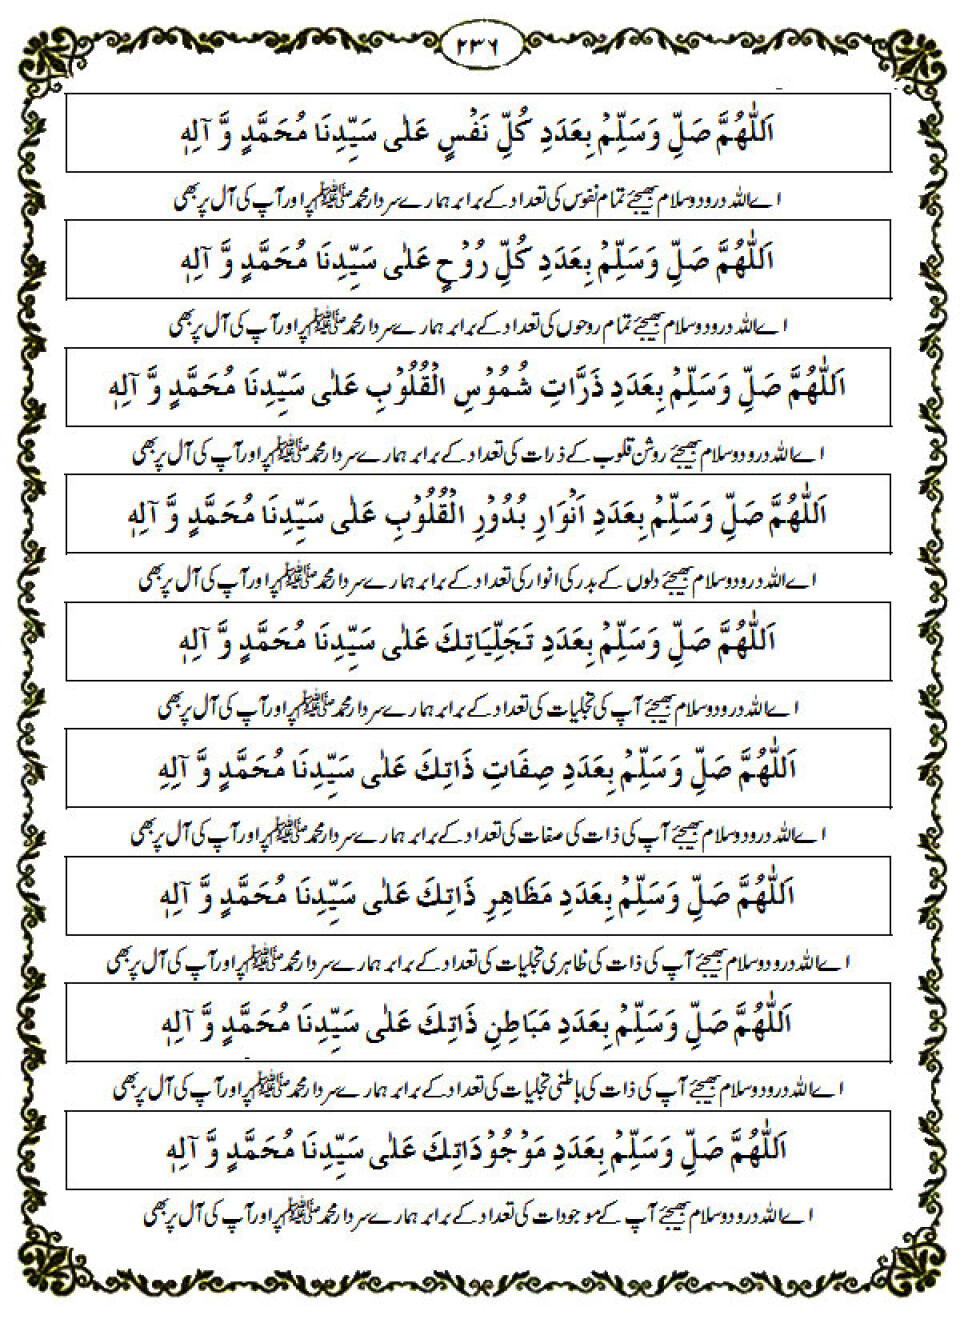 ۲۳۶
اَللّٰهُمَّ صَلِّ وَسَلِّمۡ بِعَدَدِ كُلِّ نَفۡسٍ عَلٰى سَيِّدِنَا مُحَمَّدٍ وَّ آلِهٖ
اے اللہ درود و سلام بھیجئے تمام نفوس کی تعداد کے برابر ہمارے سردار محمد ﷺ پر اور آپ کی آل پر بھی
اَللّٰهُمَّ صَلِّ وَسَلِّمۡ بِعَدَدِ كُلِّ رُوۡحٍ عَلٰى سَيِّدِنَا مُحَمَّدٍ وَّ آلِهٖ
اے اللہ درود و سلام بھیجئے تمام روحوں کی تعداد کے برابر ہمارے سردار محمد ﷺ پر اور آپ کی آل پر بھی
اَللّٰهُمَّ صَلِّ وَسَلِّمۡ بِعَدَدِ ذَرَّاتِ شُمُوۡسِ الۡقُلُوۡبِ عَلٰى سَيِّدِنَا مُحَمَّدٍ وَّ آلِهٖ
اے اللہ درود و سلام بھیجئے روشن قلوب کے ذرات کی تعداد کے برابر ہمارے سردار محمد ﷺ پر اور آپ کی آل پر بھی
اَللّٰهُمَّ صَلِّ وَسَلِّمۡ بِعَدَدِ اَنۡوَارِ بُدُوۡرِ الۡقُلُوۡبِ عَلٰى سَيِّدِنَا مُحَمَّدٍ وَّ آلِهٖ
اے اللہ درود و سلام بھیجئے دلوں کے بدر کی انوار کی تعداد کے برابر ہمارے سردار محمد ﷺ پر اور آپ کی آل پر بھی
اَللّٰهُمَّ صَلِّ وَسَلِّمۡ بِعَدَدِ تَجَلِّيَاتِكَ عَلٰى سَيِّدِنَا مُحَمَّدٍ وَّ آلِهٖ
اے اللہ درود و سلام بھیجئے آپ کی تجلیات کی تعداد کے برابر ہمارے سردار محمد ﷺ پر اور آپ کی آل پر بھی
اَللّٰهُمَّ صَلِّ وَسَلِّمۡ بِعَدَدِ صِفَاتِ ذَاتِكَ عَلٰى سَيِّدِنَا مُحَمَّدٍ وَّ آلِهِ
اے اللہ درود و سلام بھیجئے آپ کی ذات کی صفات کی تعداد کے برابر ہمارے سردار محمد ﷺ پر اور آپ کی آل پر بھی
اَللّٰهُمَّ صَلِّ وَسَلِّمۡ بِعَدَدِ مَظَاهِرِ ذَاتِكَ عَلٰى سَيِّدِنَا مُحَمَّدٍ وَّ آلِهٖ
اے اللہ درود و سلام بھیجئے آپ کی ذات کی ظاہری تجلیات کی تعداد کے برابر ہمارے سردار محمد ﷺ پر اور آپ کی آل پر بھی
اَللّٰهُمَّ صَلِّ وَسَلِّمۡ بِعَدَدِ مَبَاطِنِ ذَاتِكَ عَلٰى سَيِّدِنَا مُحَمَّدٍ وَّ آلِهٖ
اے اللہ درود و سلام بھیجئے آپ کی ذات کی باطنی تجلیات کی تعداد کے برابر ہمارے سردار محمد ﷺ پر اور آپ کی آل پر بھی
اَللّٰهُمَّ صَلِّ وَسَلِّمۡ بِعَدَدِ مَوۡجُوۡدَاتِكَ عَلٰى سَيِّدِنَا مُحَمَّدٍ وَّ آلِهٖ
اے اللہ درود و سلام بھیجئے آپ کے موجودات کی تعداد کے برابر ہمارے سردار محمد ﷺ پر اور آپ کی آل پر بھی